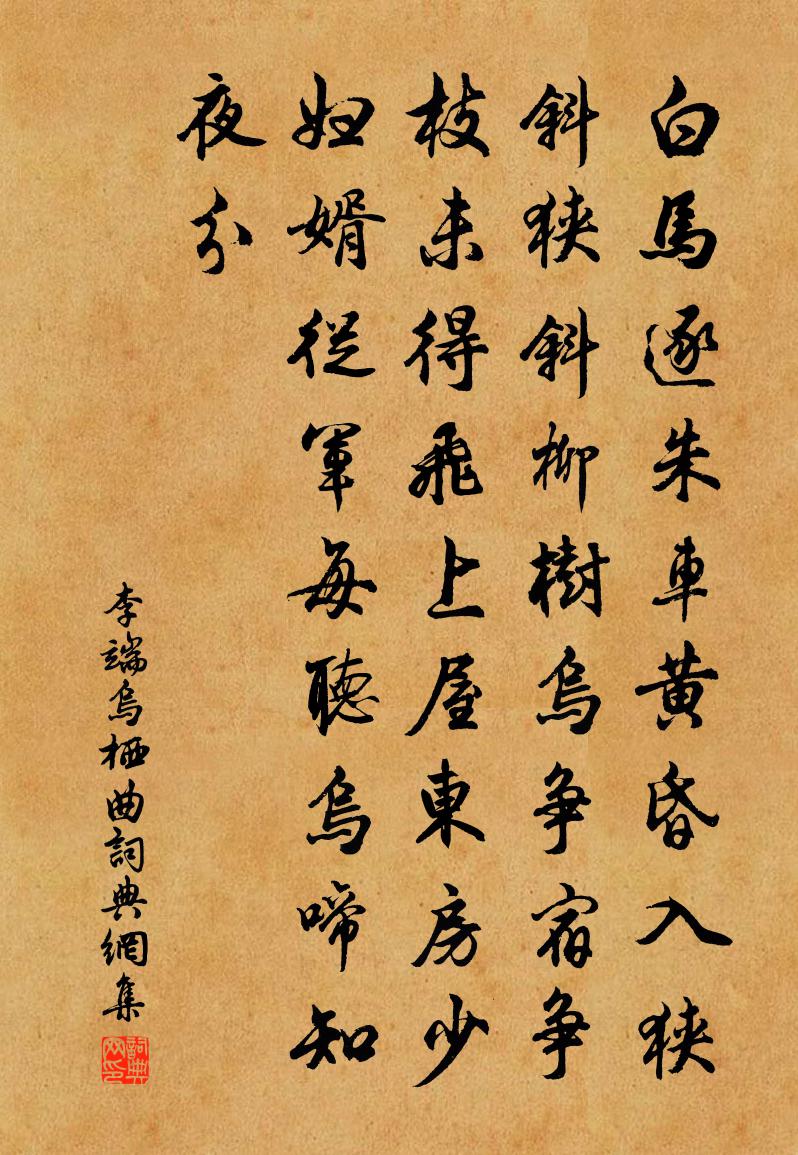 白馬逐朱車黃昏入狹
斜狹斜柳樹烏争宿争
枝未得飛上屋東房少
婦婿從軍每聽烏啼知
夜分
李端烏栖曲詞典網集
詞典网印